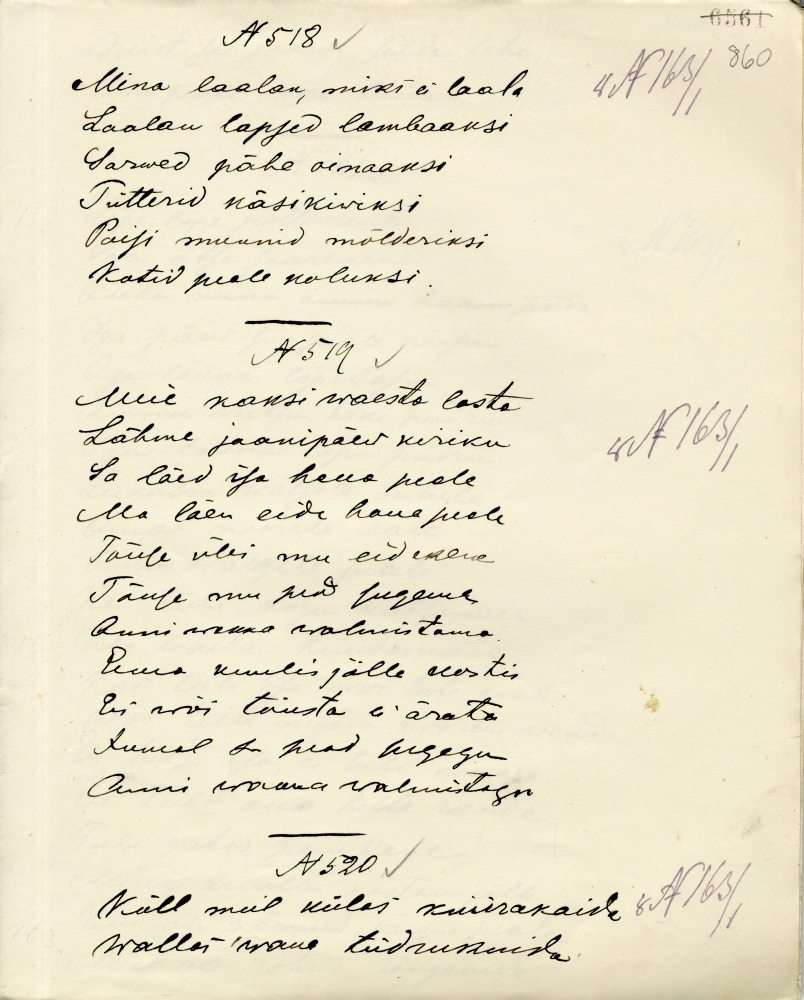 6561
860
N 518 ✓
N 163/1
Mina laalan, miks ei laala
Laalan lapsed lambaaksi
Sarwed pähe oinaaksi
Tütterid käsikiwiksi
Poisi munnid mölderiksi
Kotid peale koluksi.
N 519 ✓
Meie kaksi waesta lasta
Lähme jaanipäew kiriku
N 163/1
Sa läed isa haua peale
Ma läen eide haua peale
Tõuse üles mu eidekene
Tõuse mu pead sugema
Anni wakka walmistama.
Ema kuulis jälle kostis
Ei wõi tõusta ei ärata
Jumal su pead sugegu
Anni wakka walmistagu
N 520 ✓
N 163/1
Küll meil külas küürakaida
Wallas wana tüdrukuida